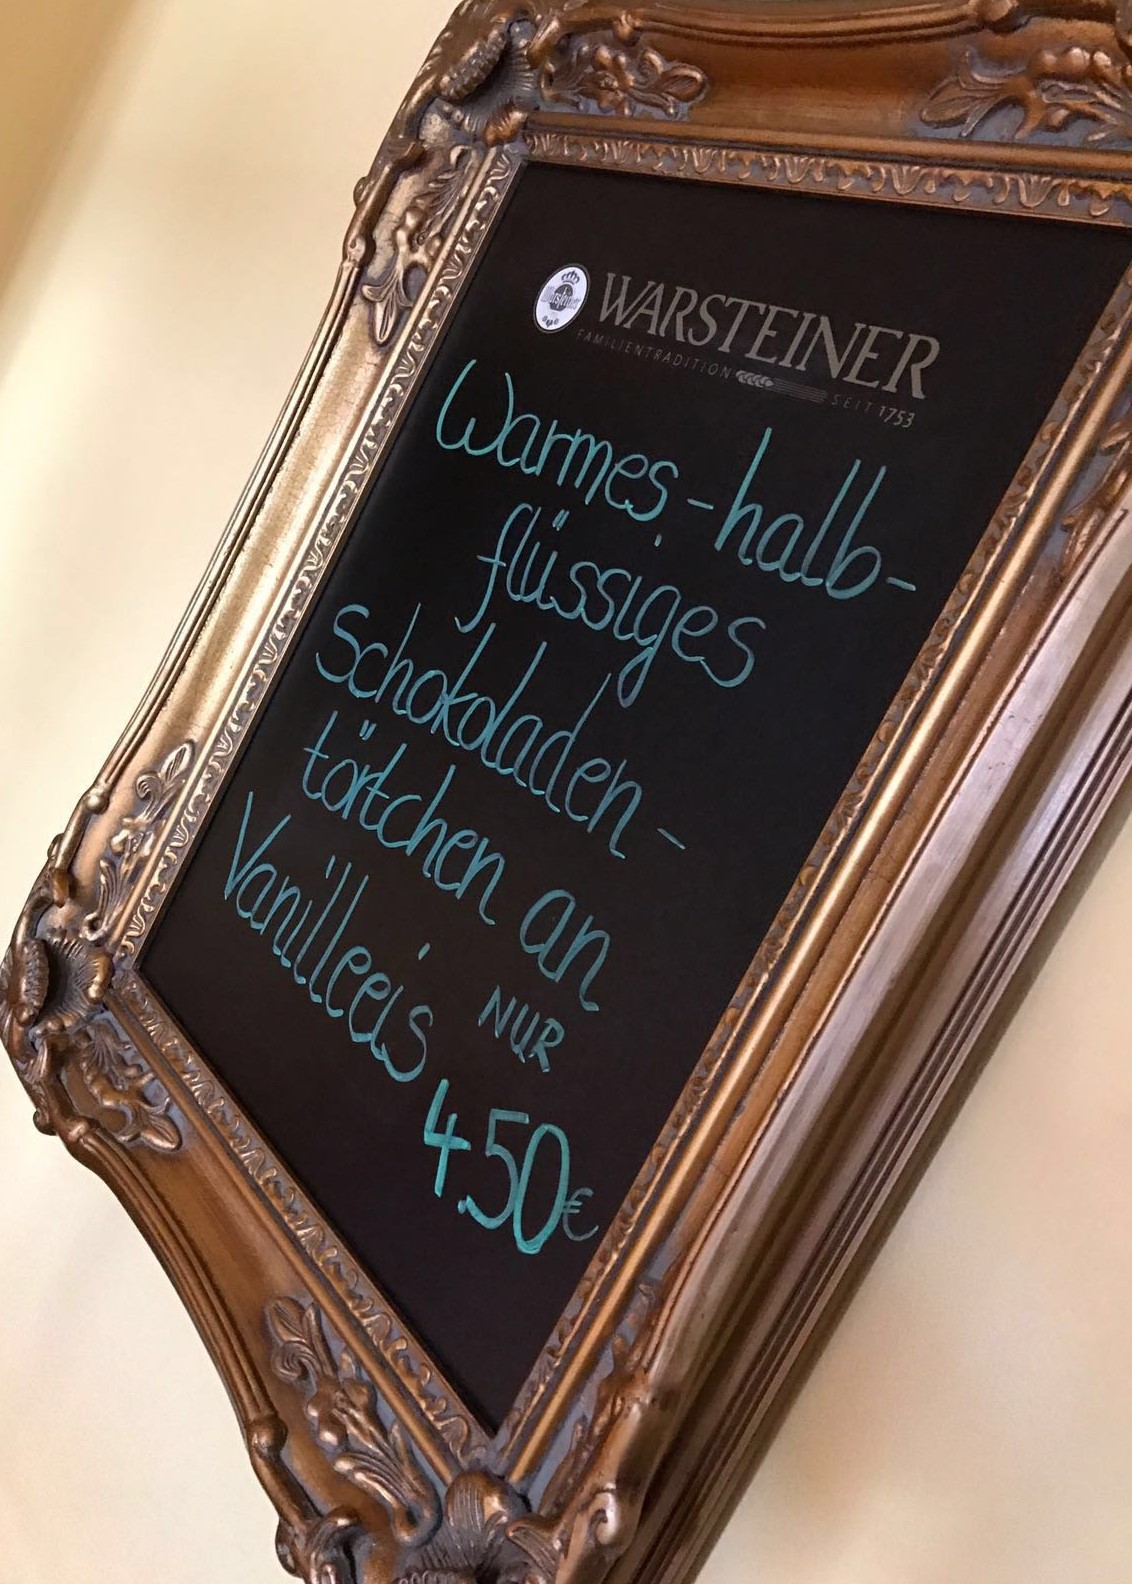 WARSTEINER
FAMILIENTRADITION SEIT 1753
Warmes, -halb-
flüssiges
Schokoladen-
törtchen an
Vanilleeis
NUR
4.50€